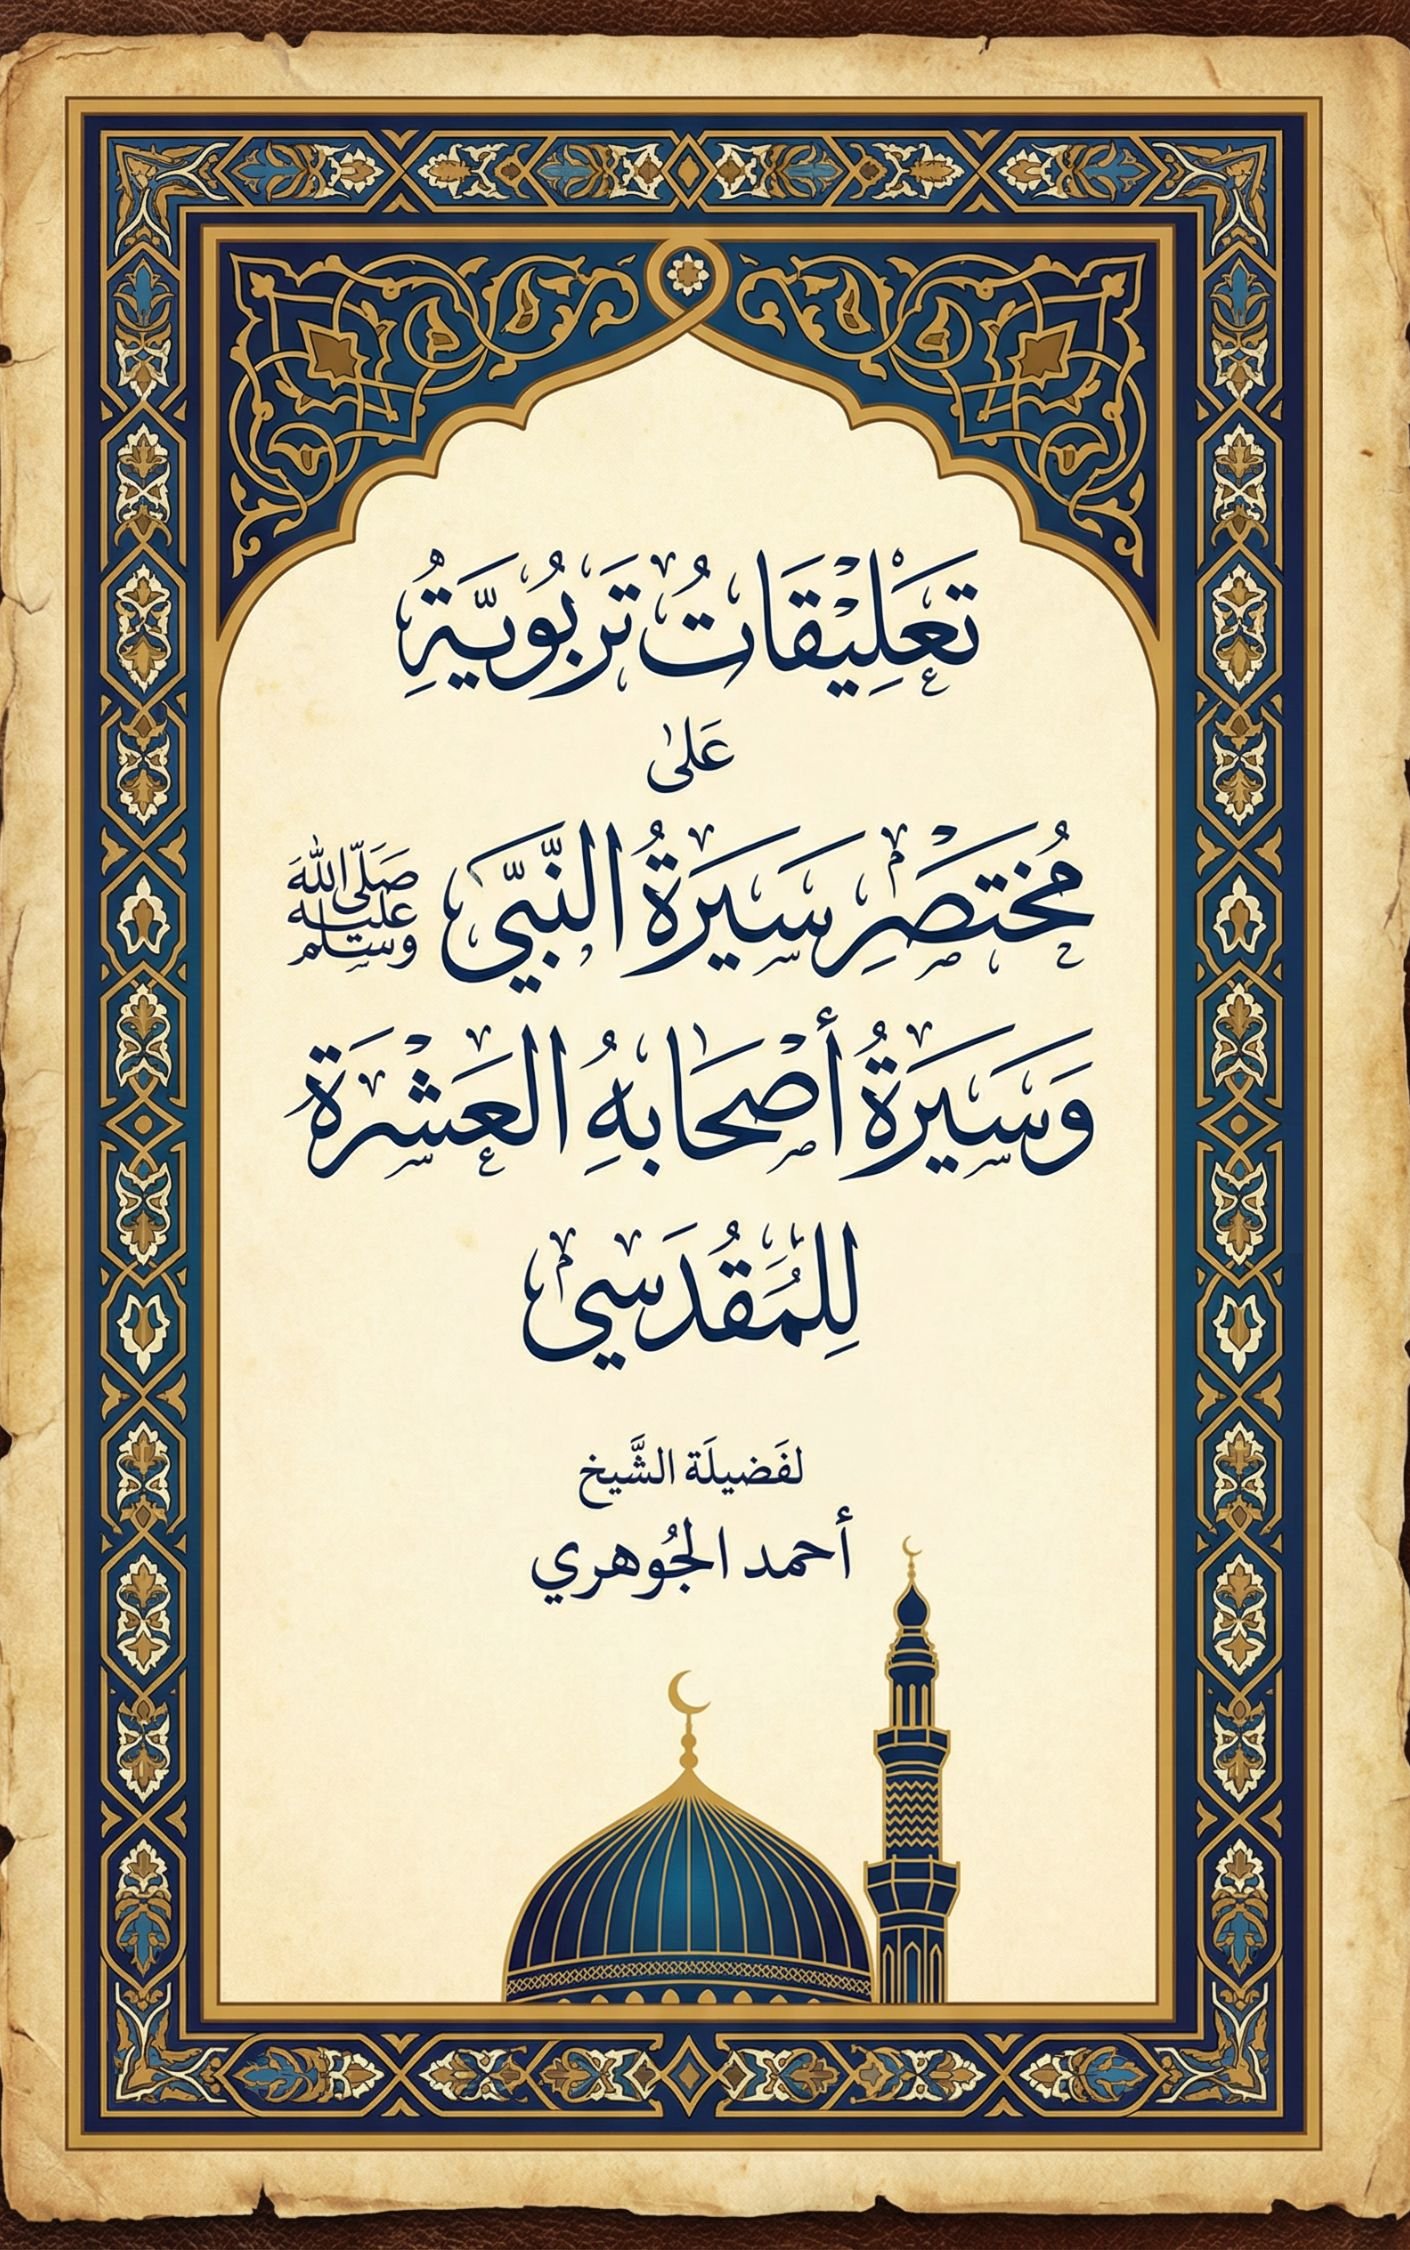 تَعَلِيْقَاتُ تَرَبُويَّةُ
عَلى
مُختصَرِ سَيَرَةُ النَّبيَّ صَلَّى اللهُ عليه وسلم
وَسَيَرَةُ أصْحَابهُ العَشْرَة
لِلمُقُدَسي
لفَضيلَة الشَّيخ
أحمد الجُوهري